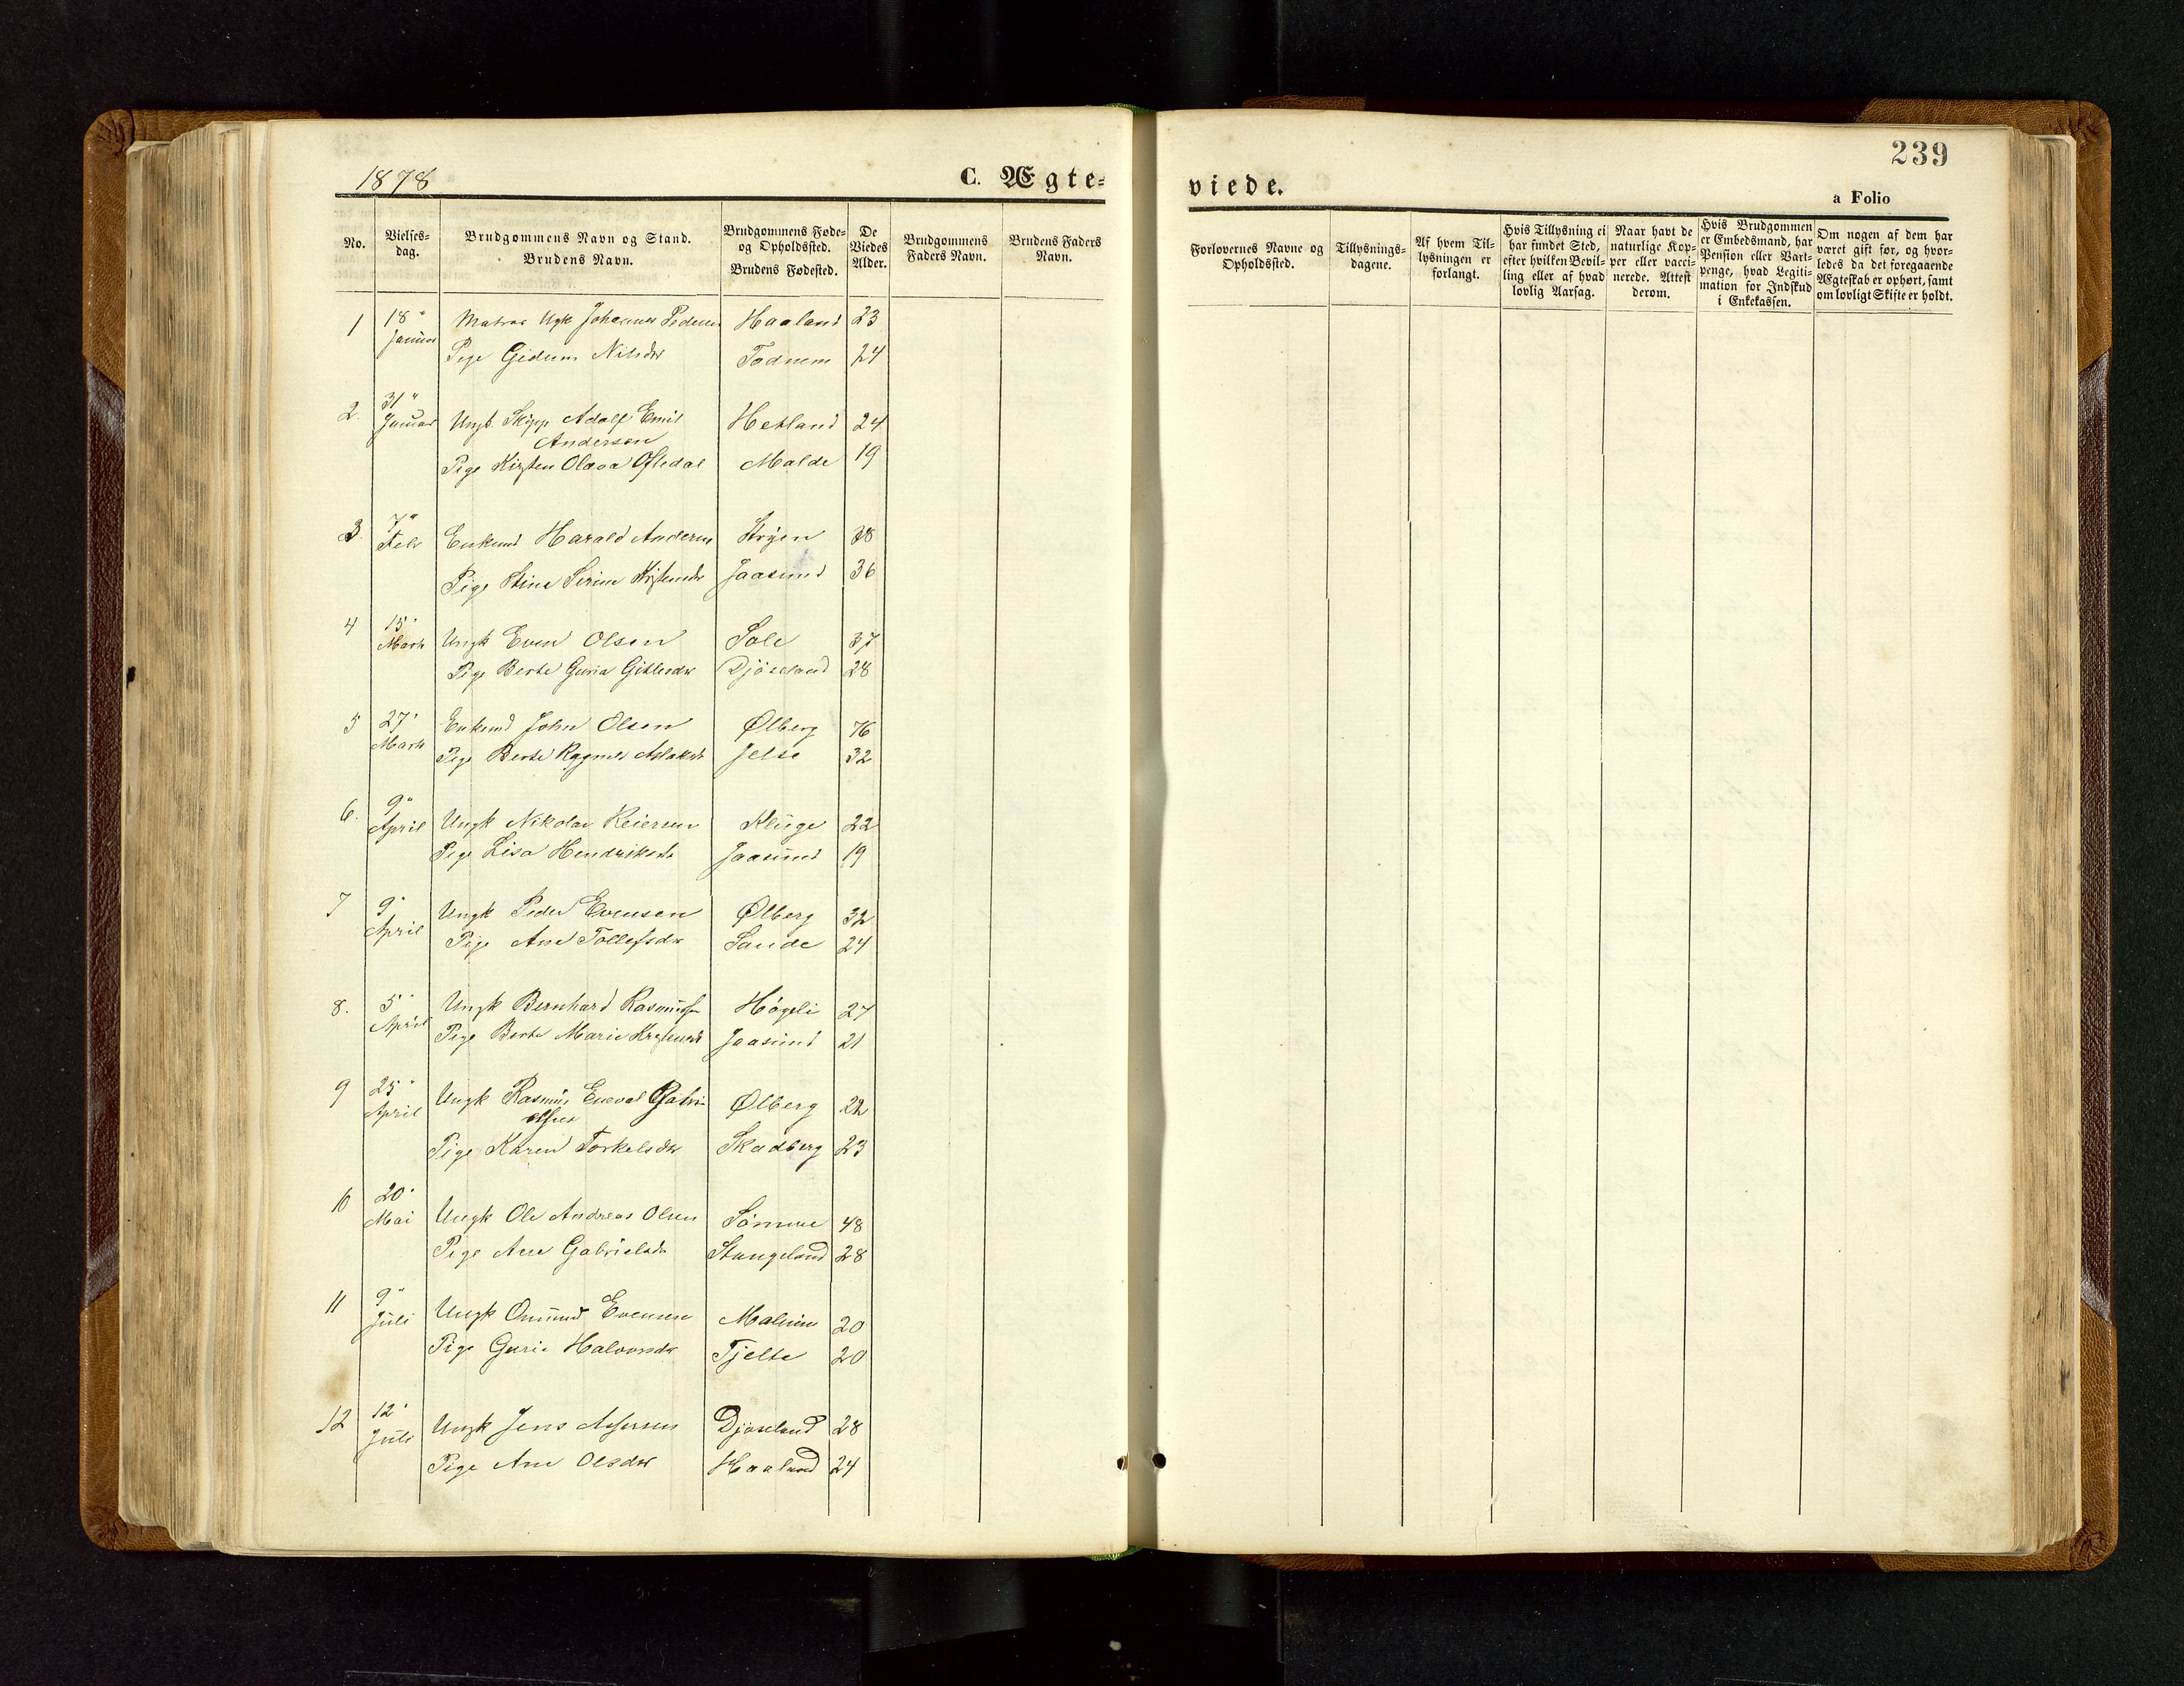 239
1878
C. Ægte=
viede.
a Folio
No.
Vielses=
dag.
Brudgommens Navn og Stand.
Brudens Navn.
Brudgommens Føde=
og Opholdsted.
Brudens Fødested.
De
Viedes
Alder.
Brudgommens
Faders Navn.
Brudens Faders
Navn.
Forlovernes Navne og
Opholdsted.
Tillysnings=
dagene.
Af hvem Til=
lysningen er
forlangt.
Hvis Tillysning ei
har fundet Sted,
efter hvilken Bevil=
ling eller af hvad
lovlig Aarsag.
Naar havt de
naturlige Kop=
per eller vacci=
nerede. Attest
derom.
Hvis Brudgommen
er Embedsmand, har
Pension eller Vart=
penge, hvad Legiti=
mation for Indskud
i Enkekassen.
Om nogen af dem har
været gift før, og hvor=
ledes da det foregaaende
Ægteskab er ophørt, samt
om lovligt Skifte er holdt.
1 18" Januar Matros Ugk Johannes Pedersen Haaland 23
Pige Nilsdr Todnem 24
2. 31" Januar Ungk. Skipp Adolf Emil Hetland 24
Andersen
Pige Kirsten Olava Oftedal Malde 19
3 7" Feb Enkemd Harald Andersen 38
Pige Stine Serine Jaasund 36
4 15" Marts Ungk Even Olsen Sole 37
Pige Berte Guria Gitlesdr Djöseland 28
5 27" Marts Enkemd John Olsen Ølberg 76
Pige Berte Ragnild Aslaksdr Jelse 32
6. 9" April Ungk Nikolai Reiersen Kluge 22
Pige Lisa Hendriksdr Jaasund 19
7 9" April Ungk Peder Evensen Ølberg 32
Pige Ane Tollefsdr Sande 24
8. 5" April Ungk Bernhard Rasmussen Högeli 27
Pige Berte Marie Jaasund 21
9 25" April Ungk Rasmus Enevald Gabri- Ølberg 22
elsen
Pige Karen Torkelsdr Skadberg 23
10 20" Mai Ungk Ole Andreas Olsen Sömme 48
Pige Ane Gabrielsdr Stangeland 28
11 9" Juli Ungk Omund Evensen Malmim 20
Pige Guri Halvorsdr Tjelte 20
12 12" Juli Ungk Jens Assersen Djöseland 28
Pige Ane Olsdr Haaland 24